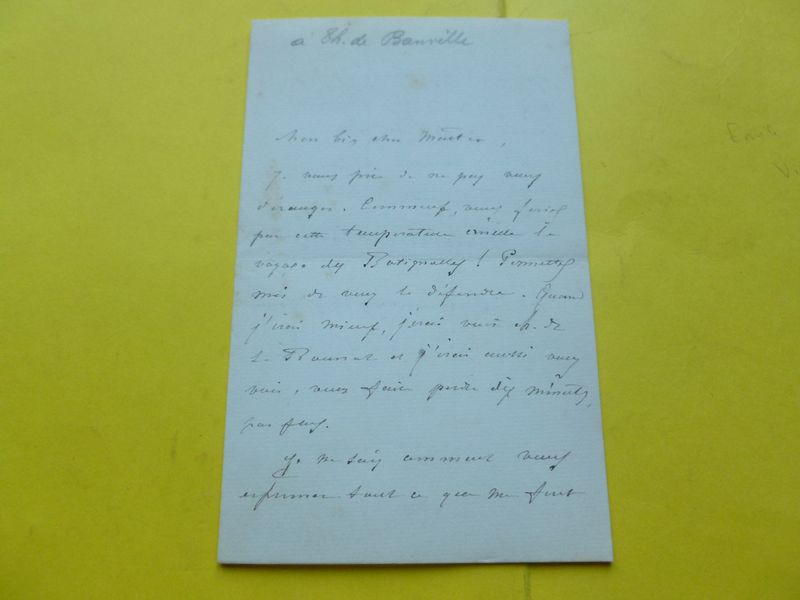 à Th. de Banville
Mon bien cher Maître,
Je vous prie de ne pas vous
déranger. Comment, vous feriez
par cette température cruelle le
voyage des Batignolles ! Permettez
moi de vous le défendre. Quand
j'irai mieux, j'irai voir
et j'irai aussi vous
voir, vous faire perdre dix minutes,
pas plus.
Je ne sais comment vous
exprimer tout ce que me font